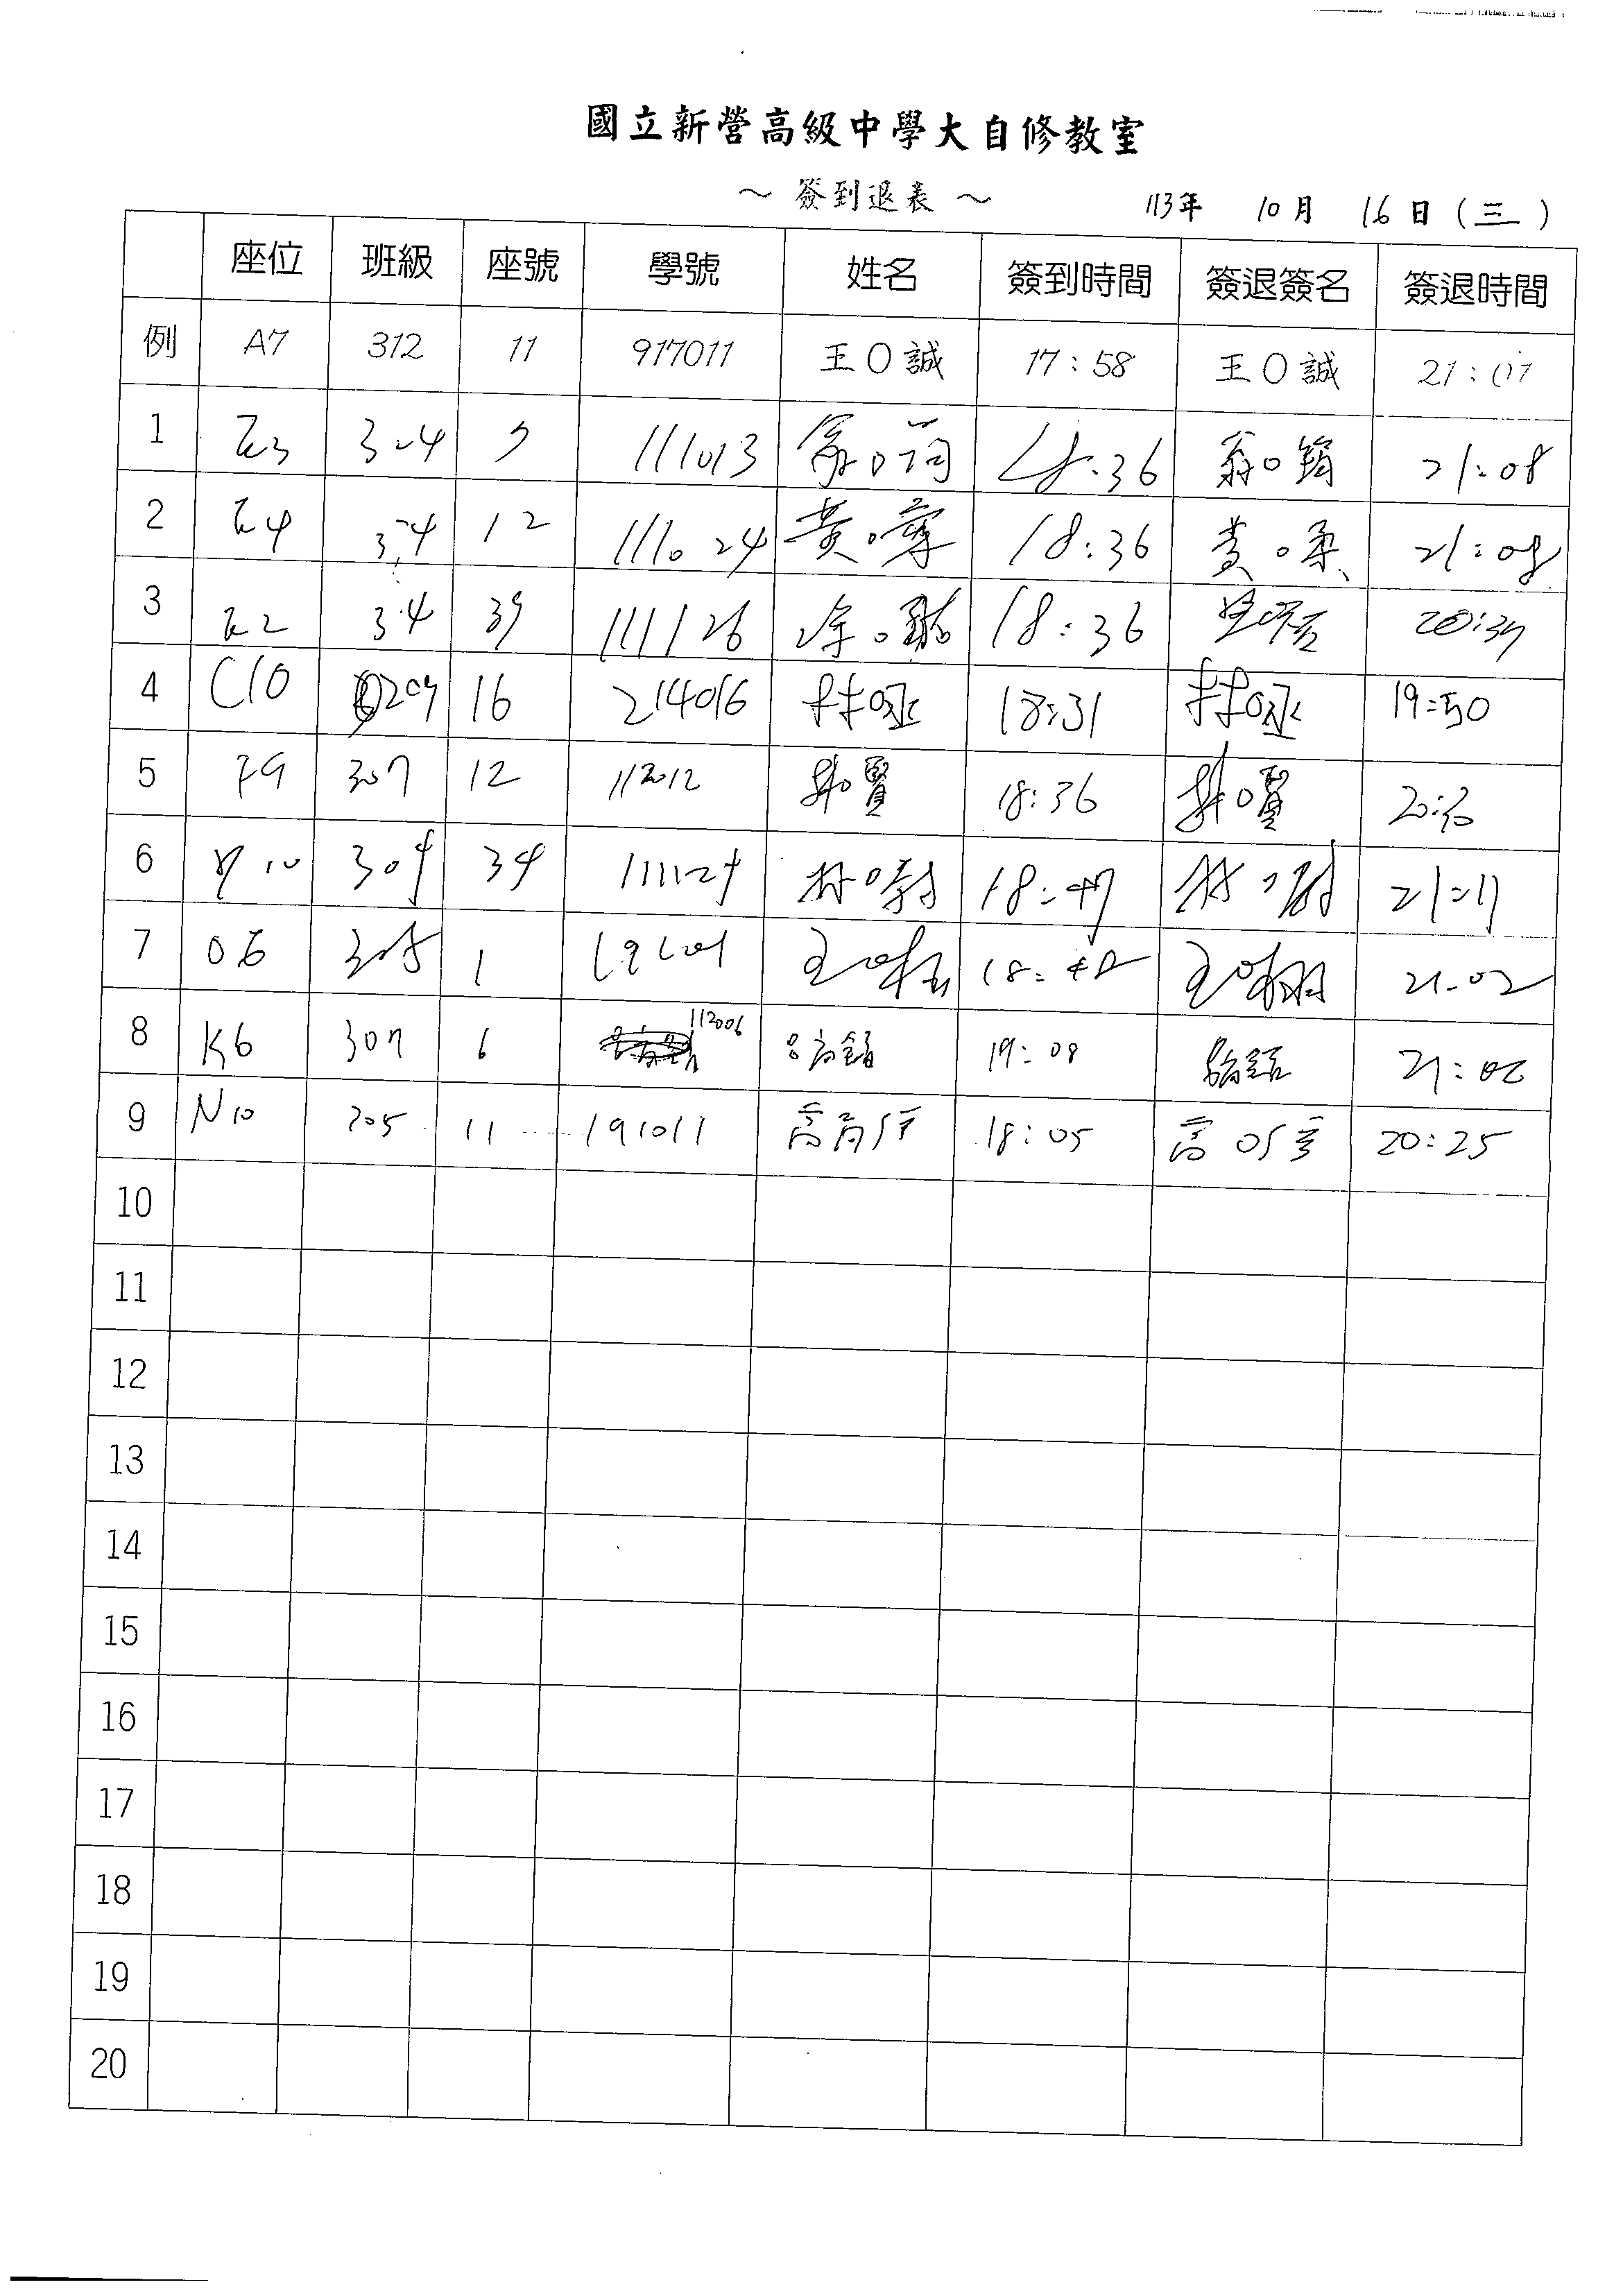 國立新營高級中學大自修教室
～ 簽到退表 ～ 113年 10月 16日(三)
座位 班級 座號 學號 姓名 簽到時間 簽退簽名 簽退時間
例 A7 312 11 917011 王O誠 17:58 王O誠 21:07
1 304 111013 18:36 21:08
2 304 12 111024 黃O 18:36 黃O柔 21:08
3 304 39 111126 18:36 20:39
4 C10 209 16 214016 林O永 18:31 林O永 19:50
5 F9 307 12 112012 O賢 18:36 O賢 20:30
6 304 34 111124 林O 18:47 林O 21:11
7 O6 305 1 王O 18:48 王O翔 21:02
8 K6 307 6 112006 19:08 21:02
9 N10 205 11 191011 高 18:05 高O 20:25
10
11
12
13
14
15
16
17
18
19
20